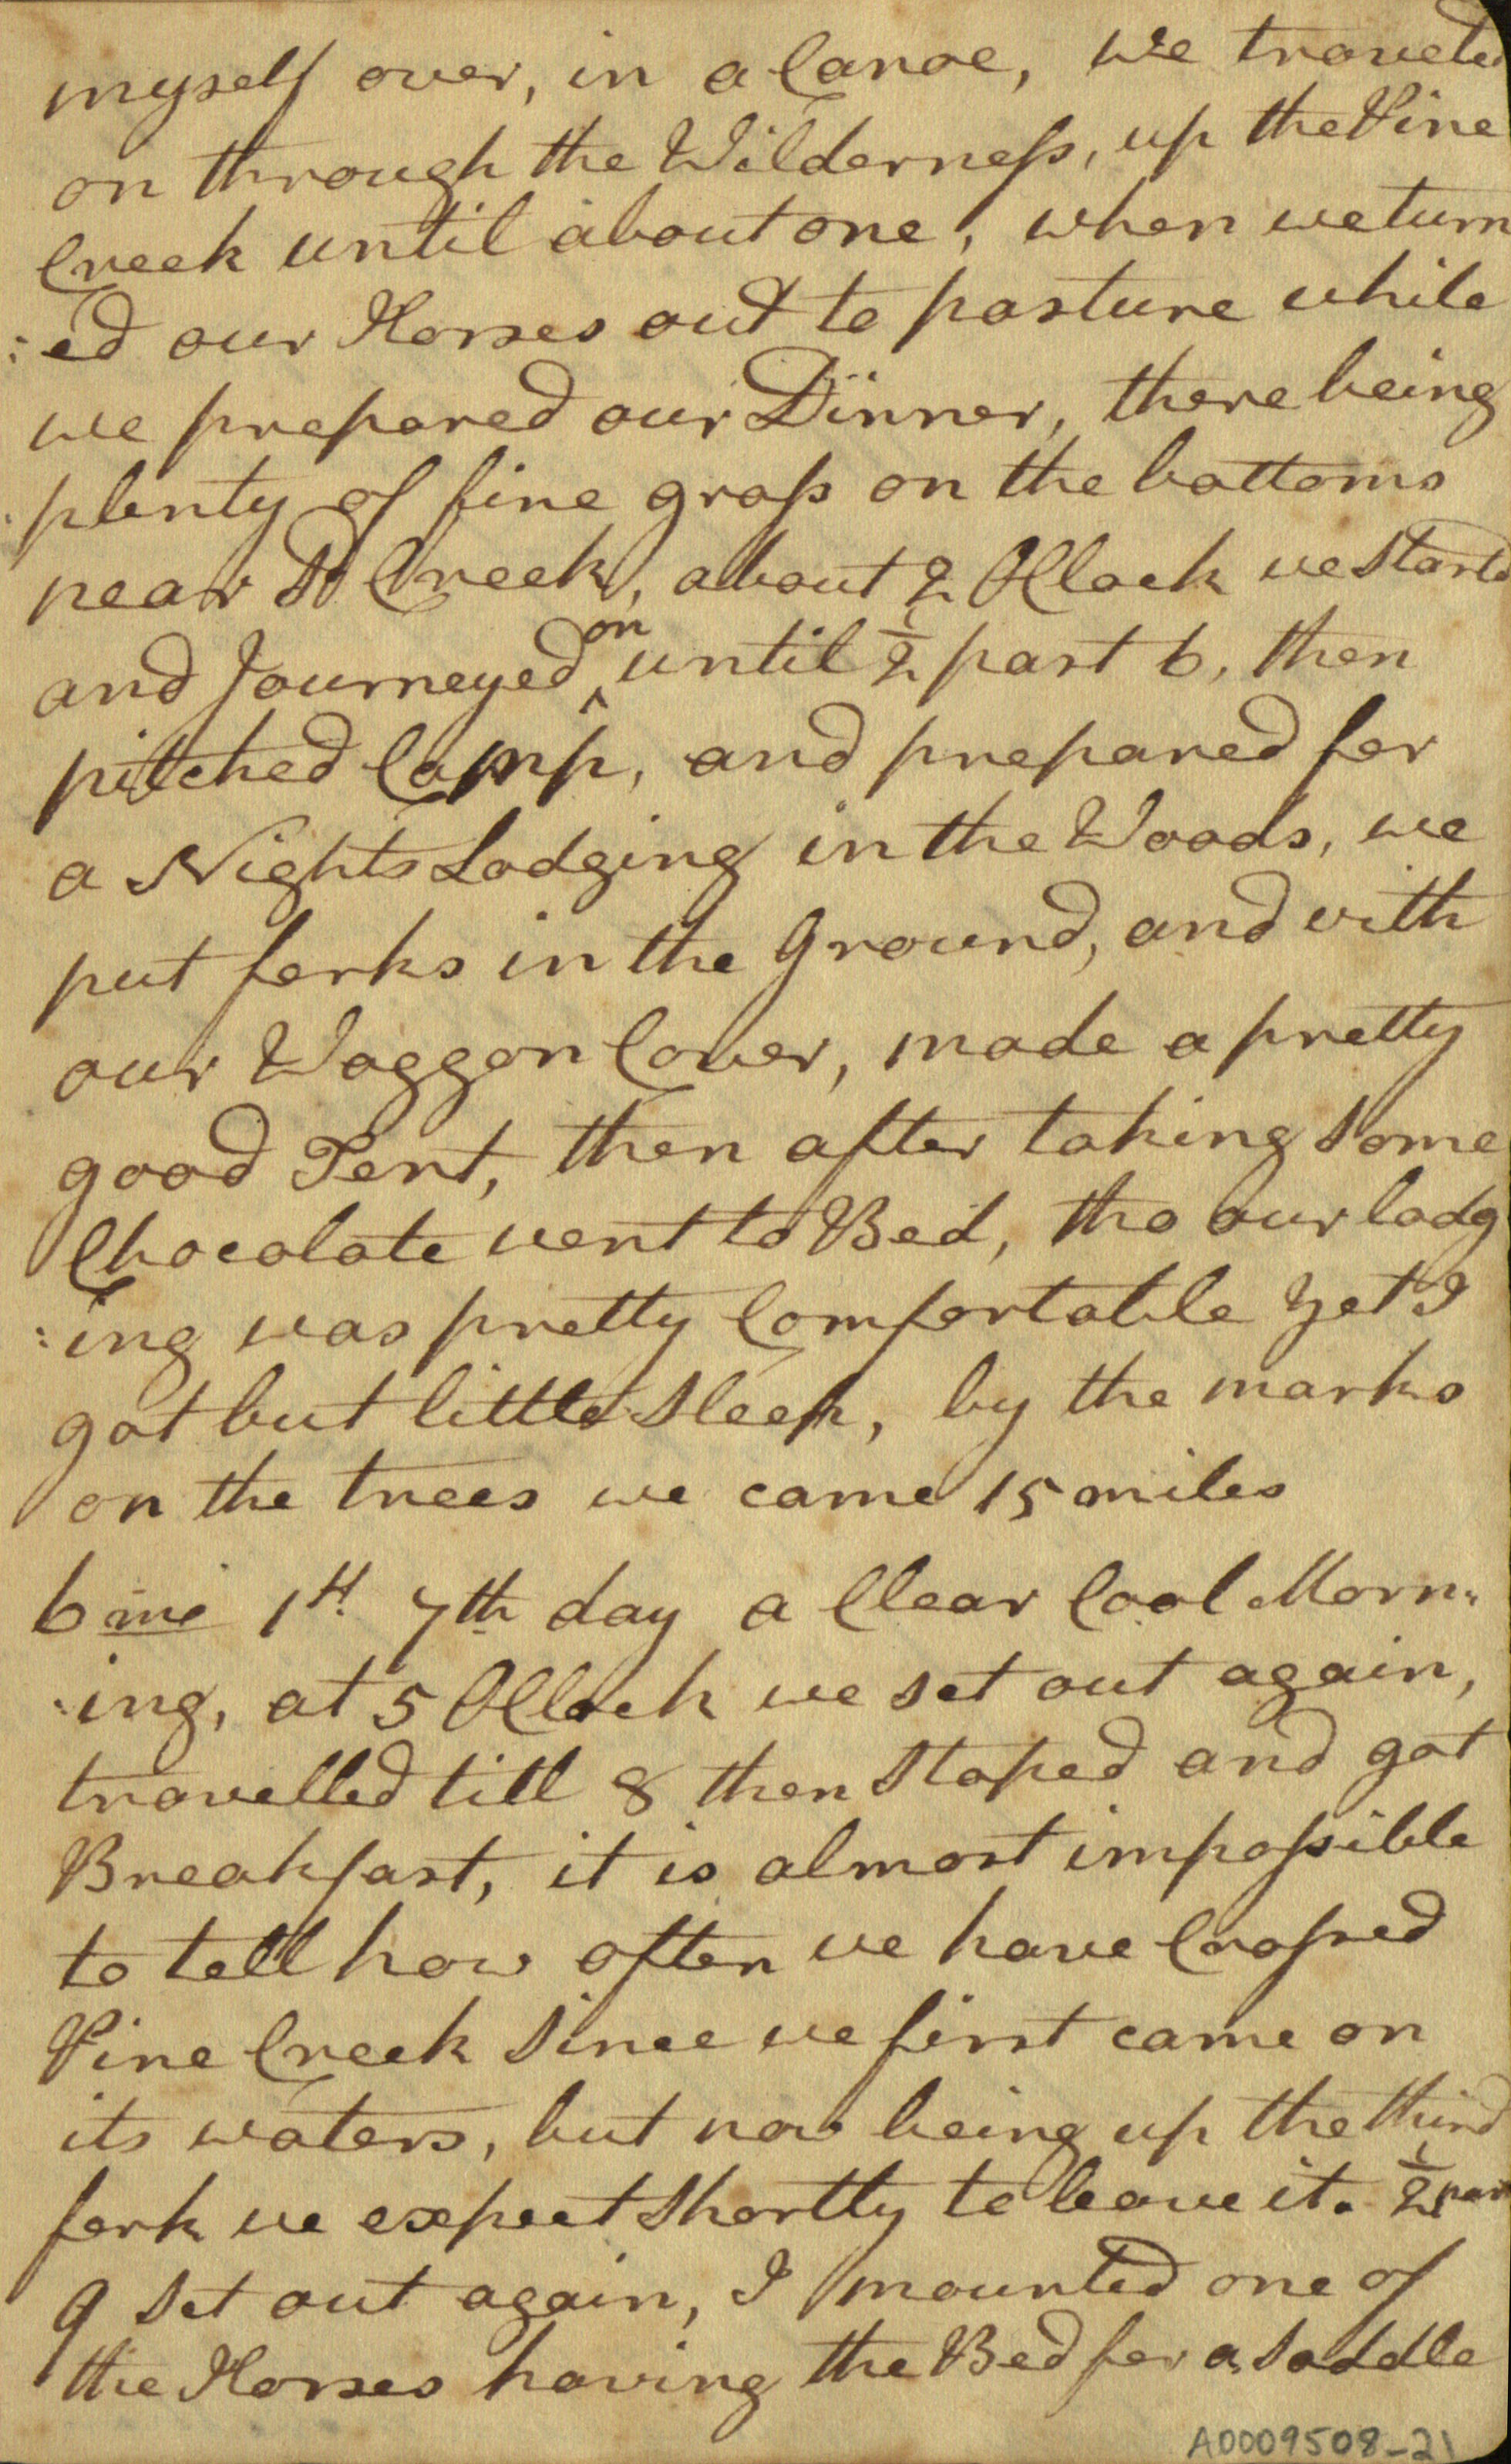 myself over, in a Canoe, we traveled
on through the Wilderness, up the Pine
Creek until about one, when we turn
:ed our Horses out to pasture while
we prepared our Dinner, there being
plenty of fine grass on the bottoms
near Sd Creek, about 2 OClock we Started
and Journeyed ^on until ½ past 6, then
pitched Camp, and prepared for
a Nights Lodging in the Woods, we
put forks in the Ground, and with
our Waggon Cover, made a pretty
good Tent, then after taking Some
Chocolate went to Bed, tho our lodg
:ing was pretty Comfortable yet I
got but little Sleep, by the marks
on the trees we came 15 miles
6 mo 1st 7th day a Clear Cool Morn:
:ing, at 5 OClock we set out again,
travelled till 8 then Stoped and got
Breakfast, it is almost impossible
to tell how often we have Crossed
Pine Creek Since we first came on
its waters, but now being up the third
fork we expect Shortly to leave it. ½ past
9 Set out again, I mounted one of
the Horses having the Bed for a Saddle
A0009508-21